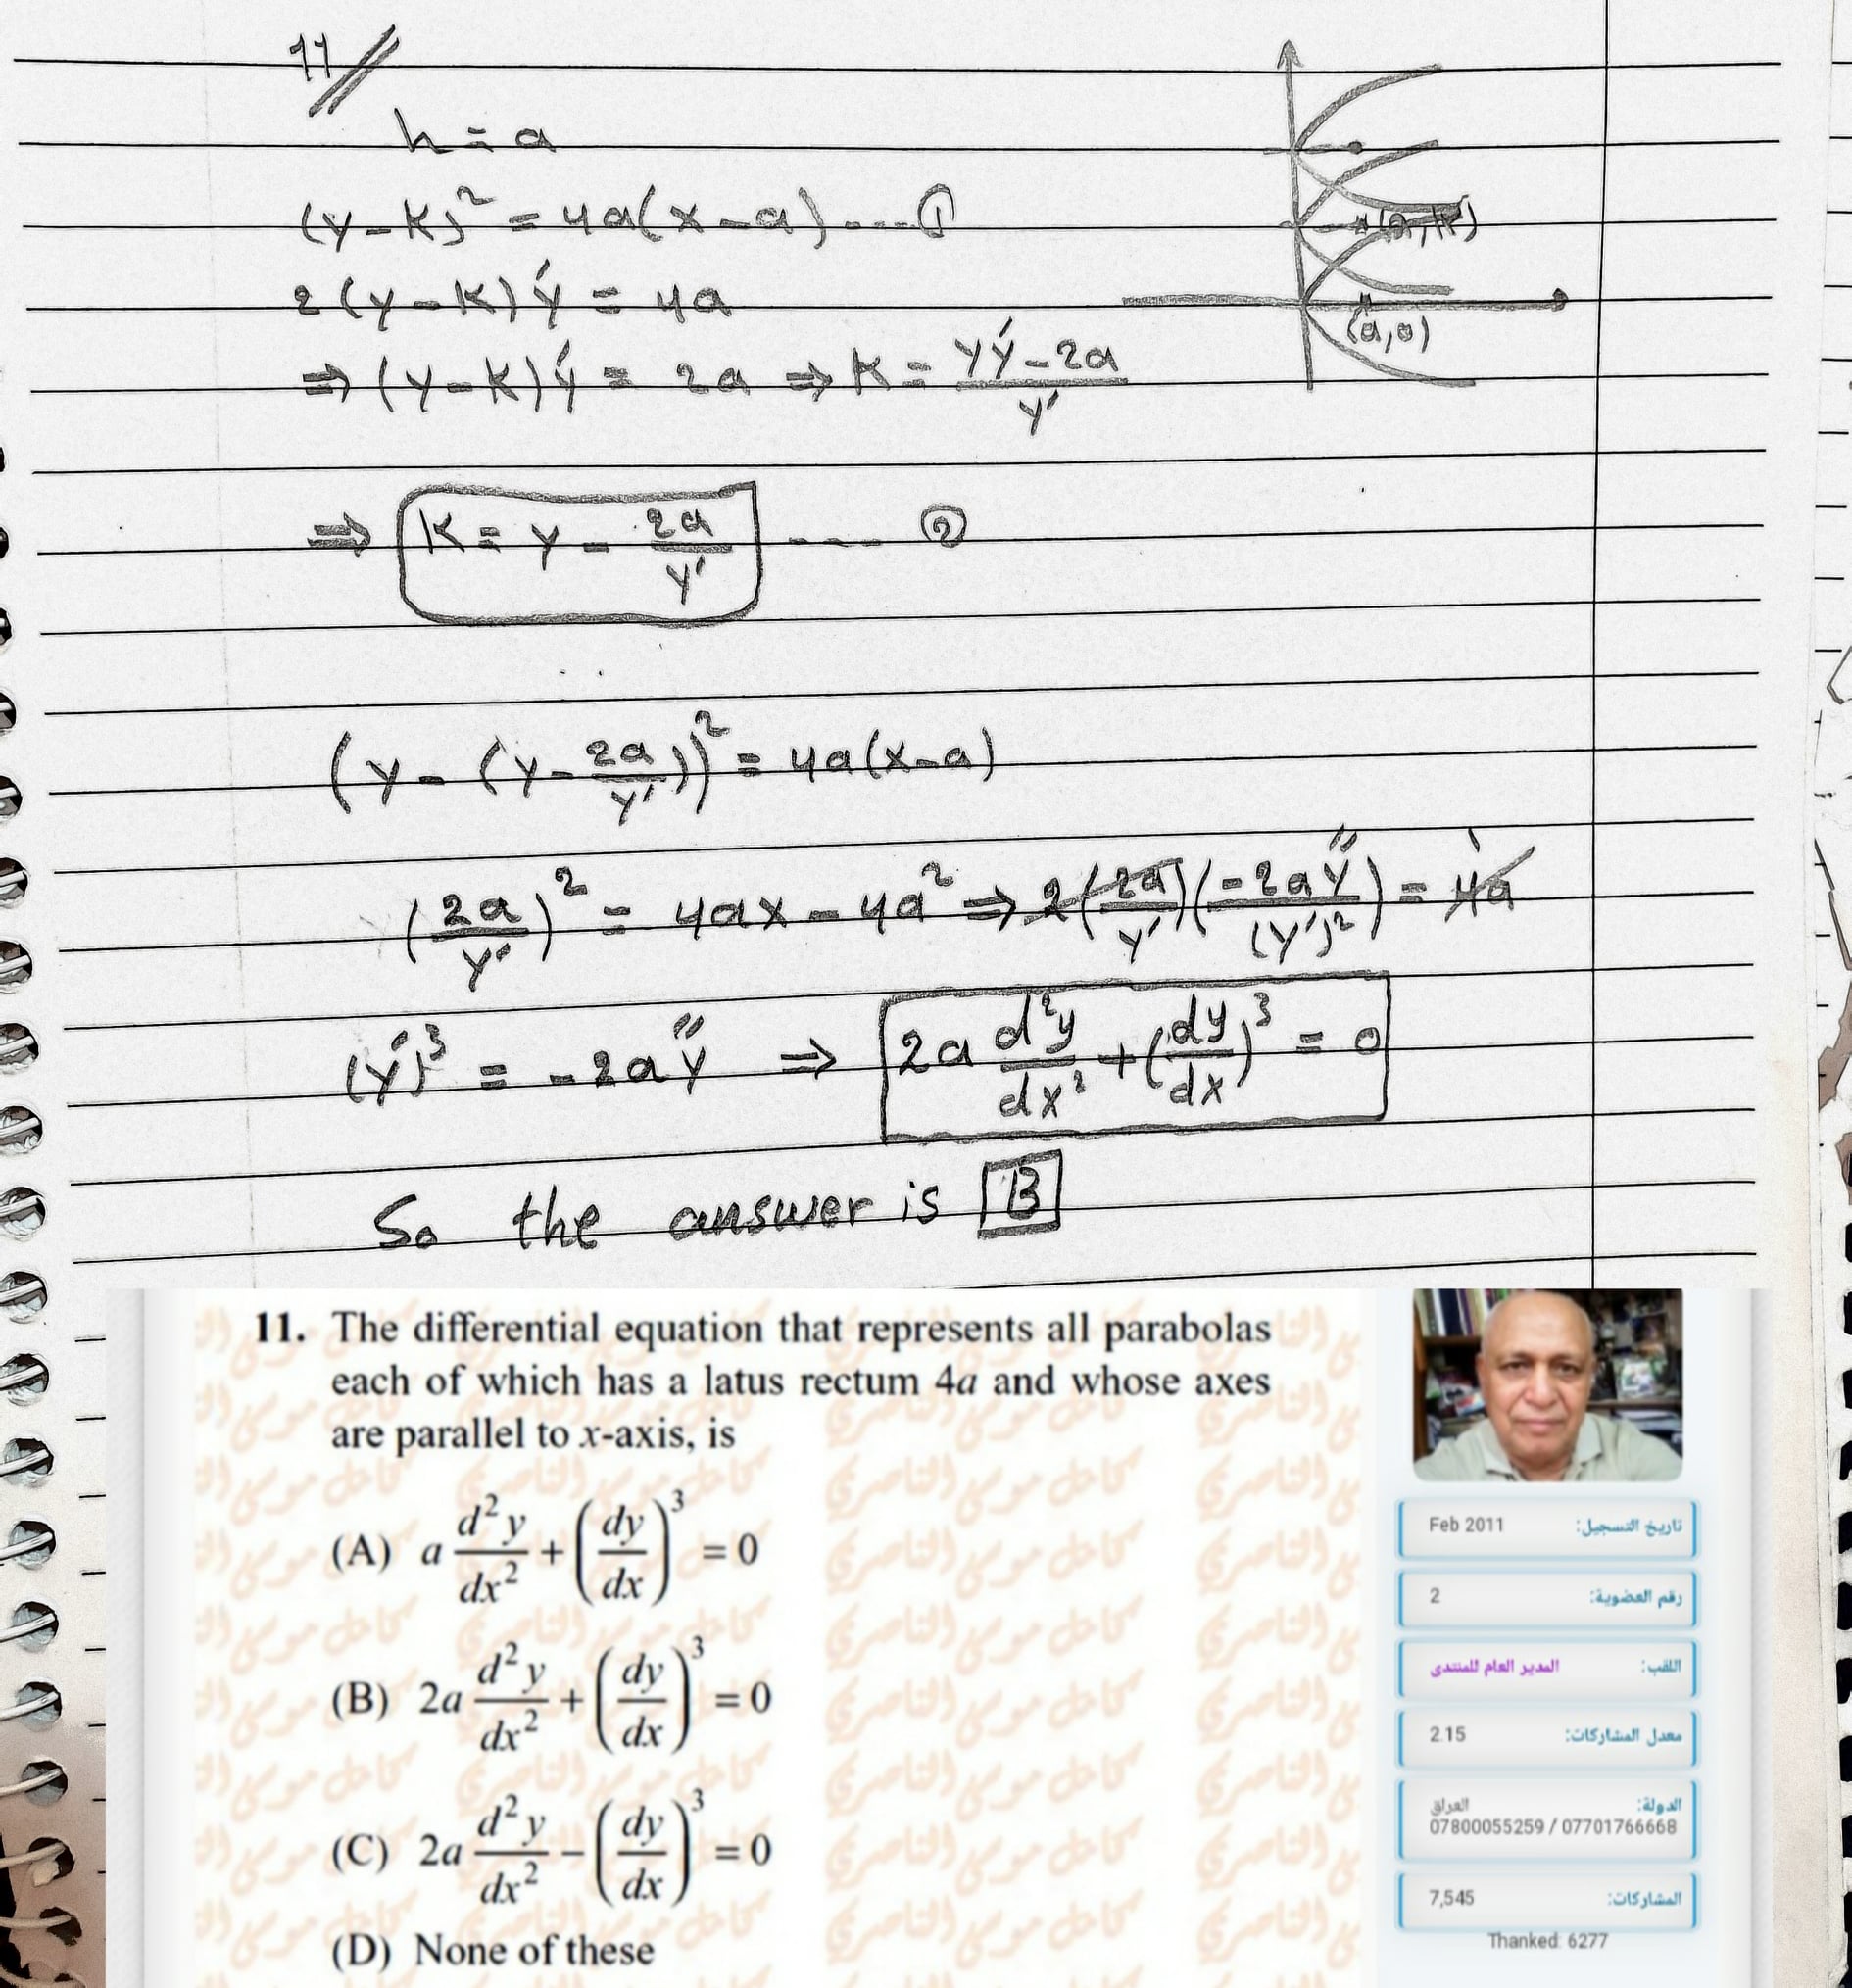 11
h = a
(y - k)² = 4a(x - a) ---- ①
2(y - k) y' = 4a
⇒ (y - k) y' = 2a ⇒ k = (yy' - 2a)/y'
(a, k)
(a, 0)
⇒ k = y - 2a/y' ---- ②
(y - (y - 2a/y'))² = 4a(x - a)
(2a/y')² = 4ax - 4a² ⇒ 2(2a/y')(-2ay''/(y')²) = 4a 1
(y')³ = -2ay'' ⇒ 2a d²y/dx² + (dy/dx)³ = 0
So the answer is B
11. The differential equation that represents all parabolas
each of which has a latus rectum 4a and whose axes
are parallel to x-axis, is
(A) a d²y/dx² + (dy/dx)³ = 0
(B) 2a d²y/dx² + (dy/dx)³ = 0
(C) 2a d²y/dx² - (dy/dx)³ = 0
(D) None of these
تاريخ التسجيل: Feb 2011
رقم العضوية: 2
اللقب: المدير العام للمنتدى
معدل المشاركات: 2.15
الدولة: العراق
07800055259 / 07701766668
المشاركات: 7,545
Thanked: 6277
كامل موسى الناصري